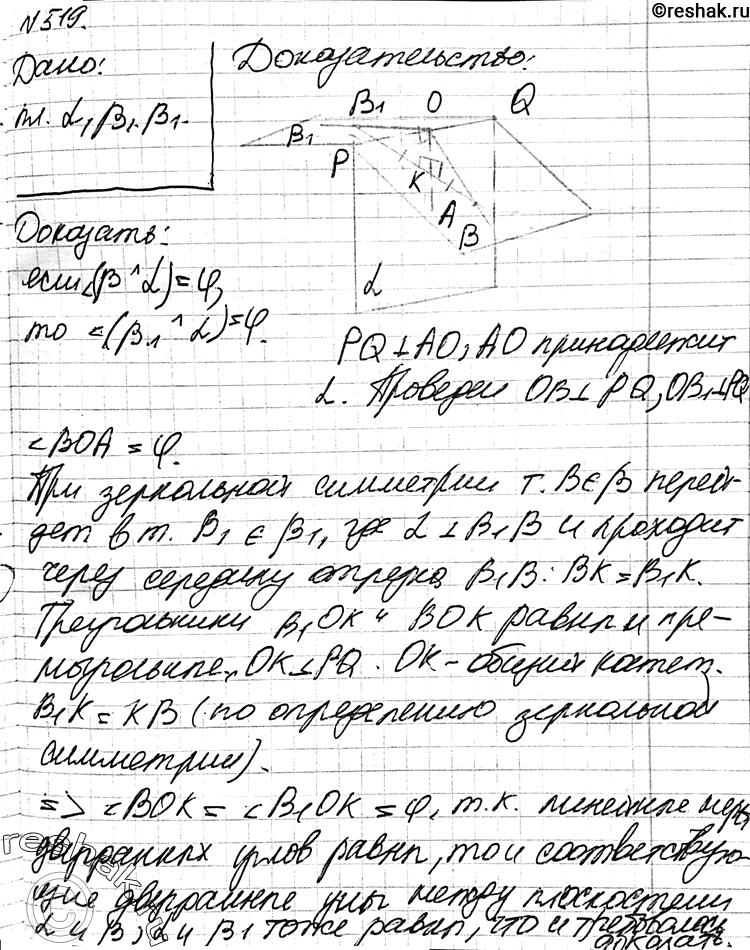 ©reshak.ru
№519.
Дано:
пл. α, β, β₁.
Доказательство:
B₁ O Q
β₁
P
K
A
B
α
Доказать:
если ∠(β^α)=φ,
то ∠(β₁^α)=φ.
PQ⊥AO, AO принадлежит
α. Проведем OB⊥PQ, OB₁⊥PQ
∠BOA = φ.
При зеркальной симметрии т. B∈β перей-
дет в т. B₁∈β₁, где α⊥B₁B и проходит
через середину отрезка B₁B: BK=B₁K.
Треугольники B₁OK и BOK равны и пря-
моугольные, OK⊥PQ. OK-общий катет.
B₁K=KB (по определению зеркальной
симметрии).
=> ∠BOK = ∠B₁OK = φ, т.к. линейные меры
двугранных углов равны, то и соответствую-
щие двугранные углы между плоскостями
α и β, α и β₁ тоже равны, что и требовалось
доказать.
reshak.ru